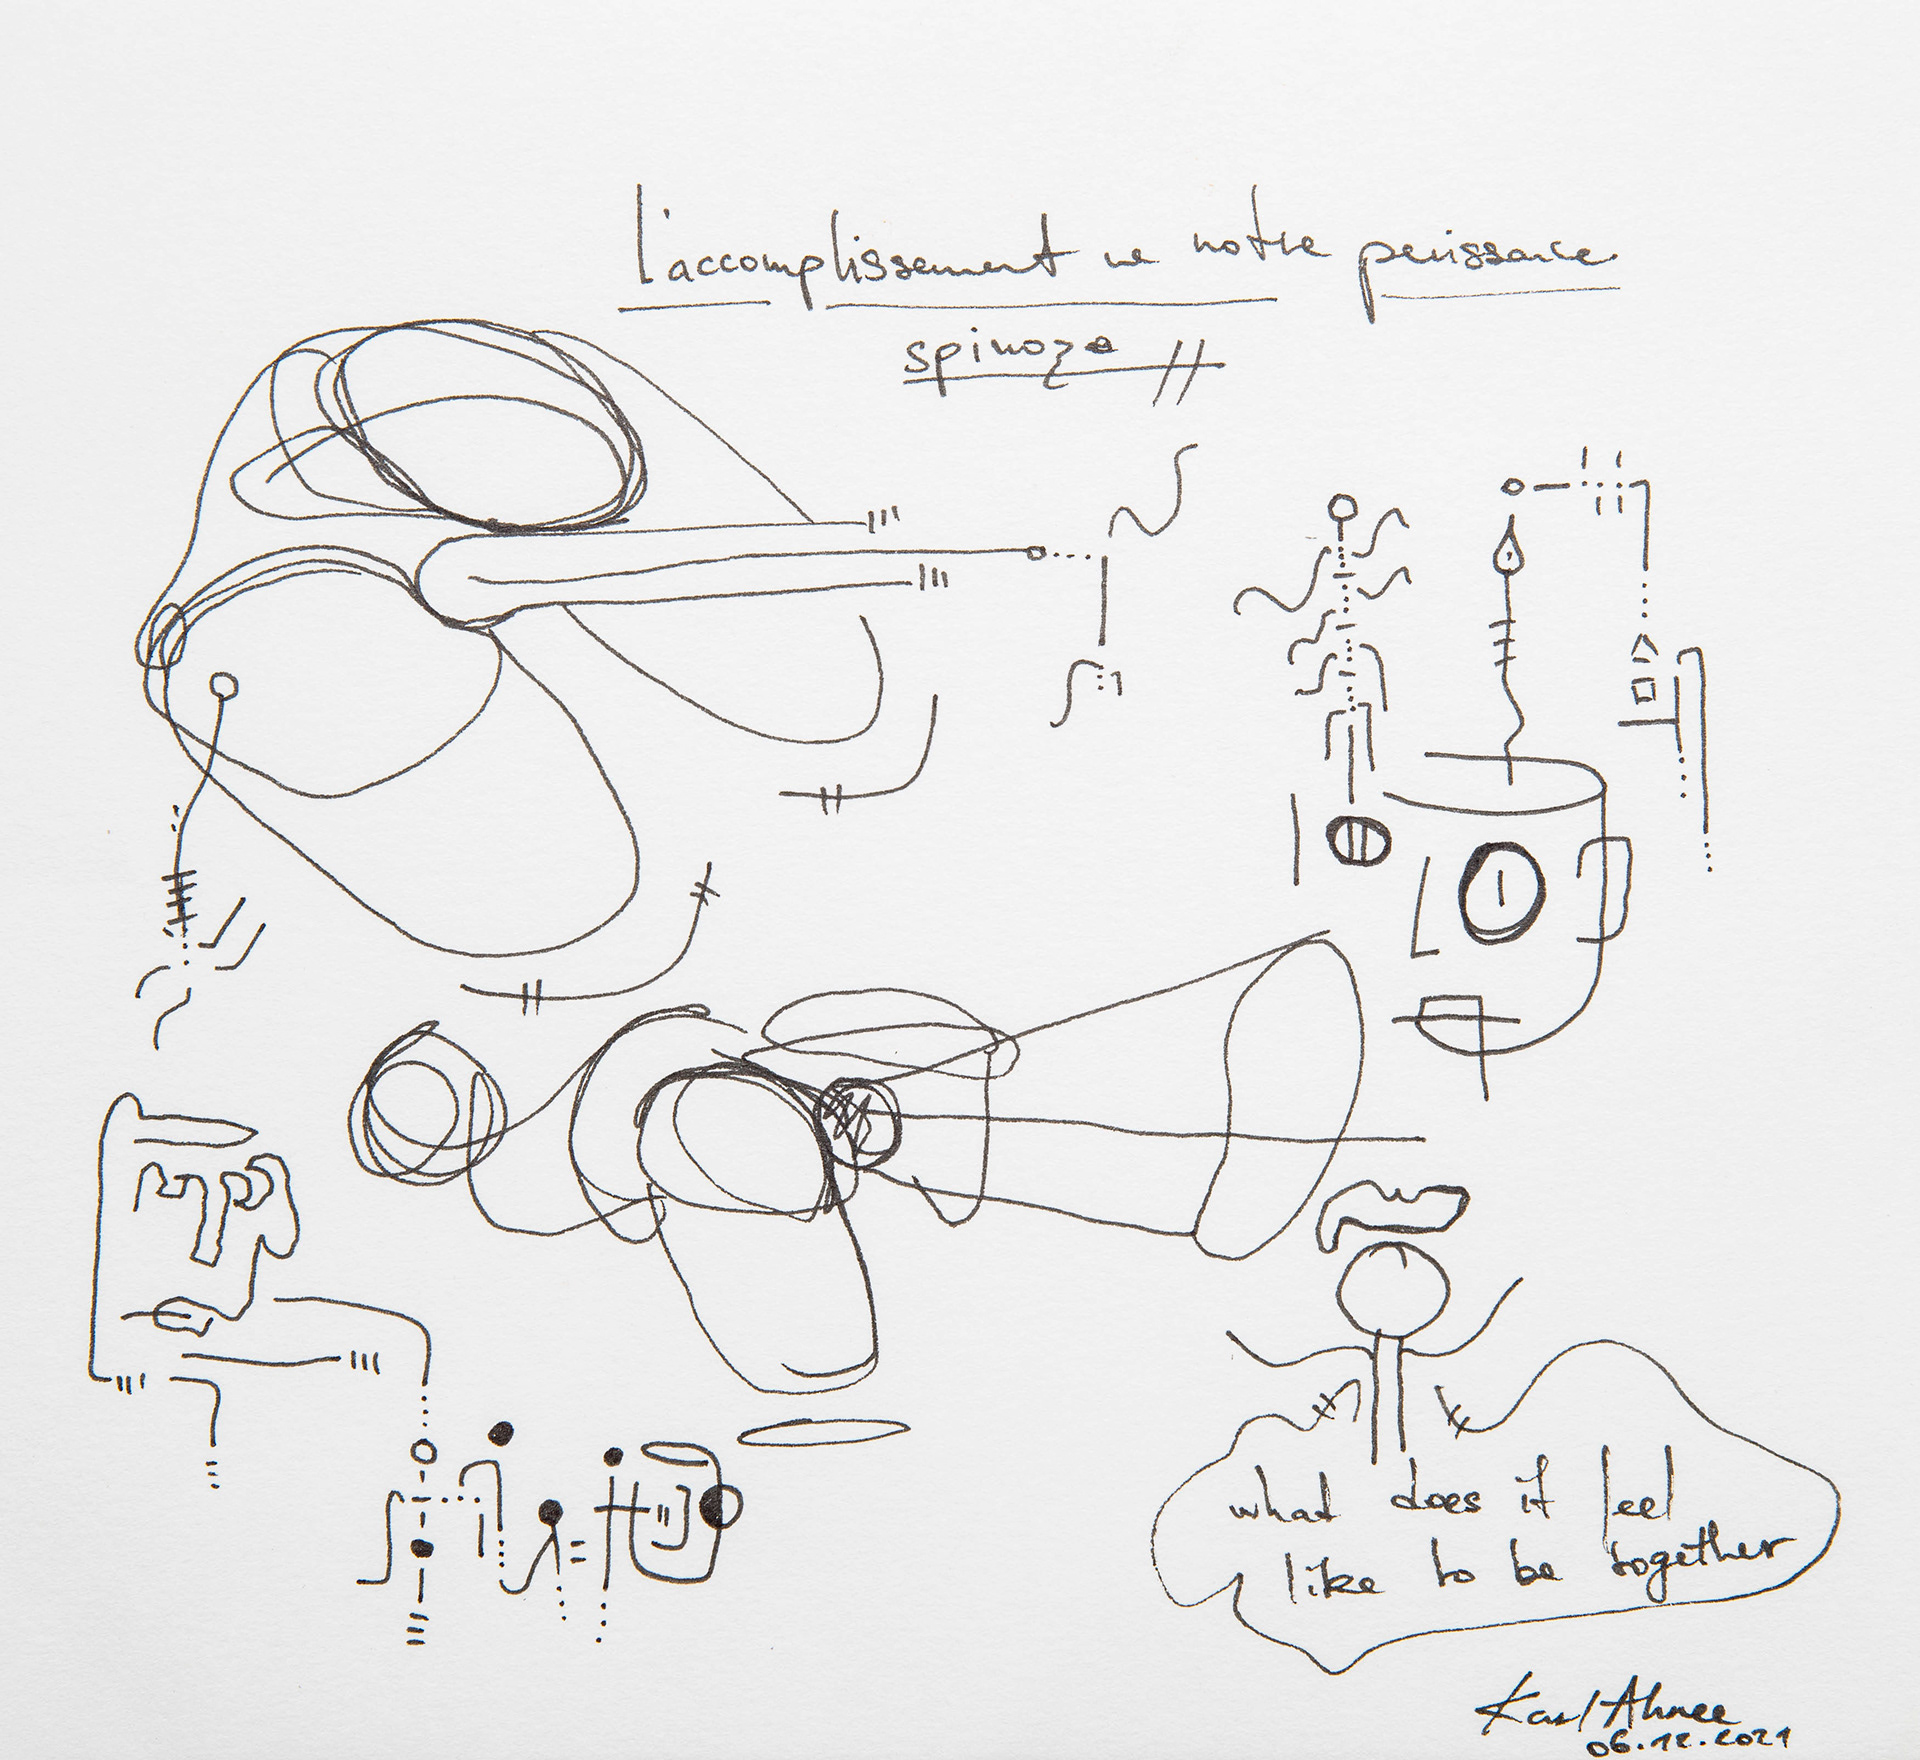 l'accomplissement de notre puissance
spinoza //
what does it feel
like to be together
Karl Ahnee
06.12.2021